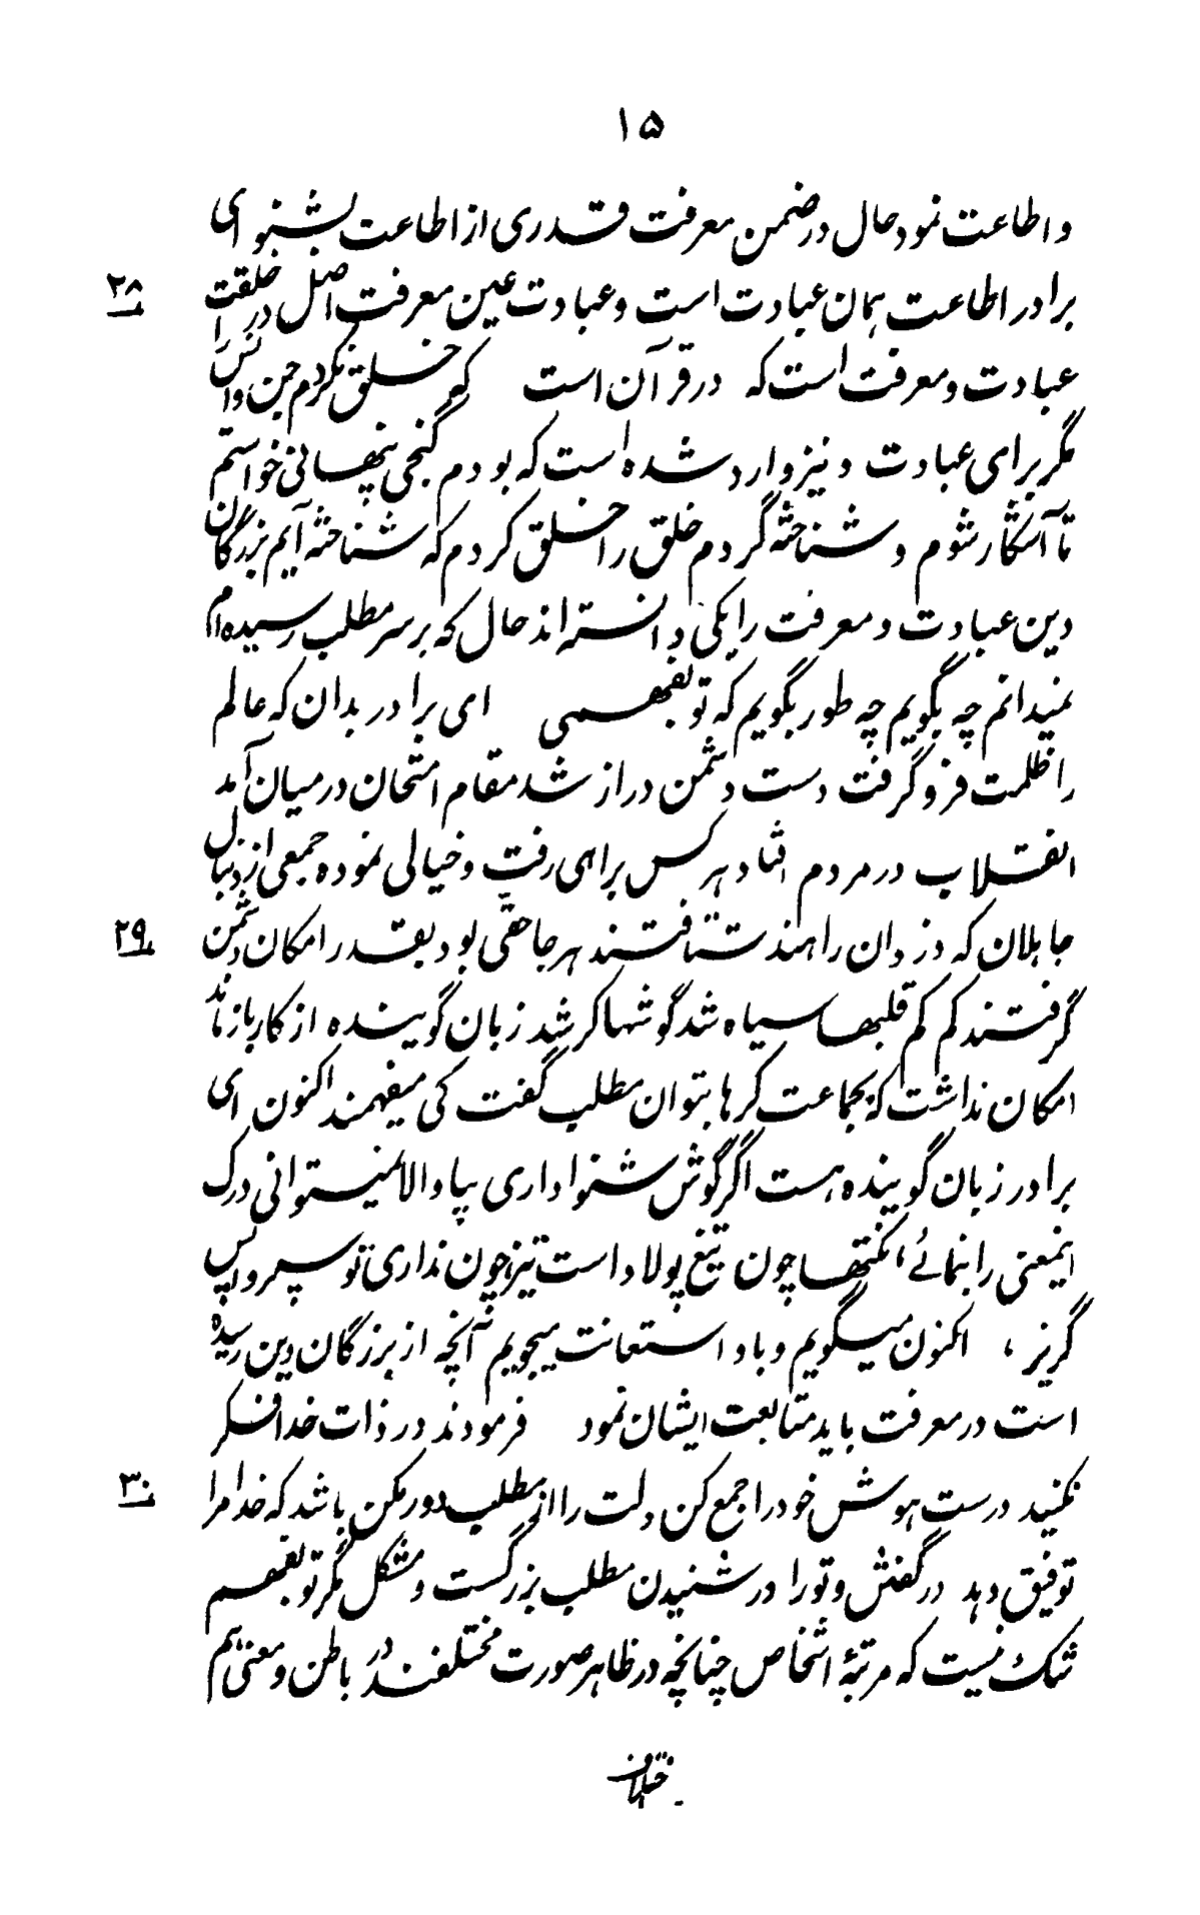 ۱۵
و اطاعت نمود حال در ضمن معرفت قدری از اطاعت بشنو ای
برادر اطاعت همان عبادت است و عبادت عین معرفت اصل خلقت در را
۲۸
عبادت و معرفت است که در قرآن است که خلق نکردم جن و انس
مگر برای عبادت و نیز وارد شده است که بودم گنجی پنهانی خواستم
تا آشکار شوم و شناخته گردم خلق را خلق کردم که شناخته آیم بزرگان
دین عبادت و معرفت را یکی دانسته اند حال که بر سر مطلب رسیده ام
نمیدانم چه بگویم چه طور بگویم که تو بفهمی ای برادر بدان که عالم
را ظلمت فرو گرفت دست دشمن دراز شد مقام امتحان در میان آمد
انقلاب در مردم افتاد هر کس براهی رفت و خیالی نموده جمعی از دنبال
جاهلان که دزدان راهند شتافتند هر جا حقی بود بقدر امکان دشمن
۲۹
گرفتند کم کم قلبها سیاه شد گوشها کر شد زبان گوینده از کار باز ماند
امکان نداشت که بجماعت کرها بتوان مطلب گفت کی میفهمند اکنون ای
برادر زبان گوینده هست اگر گوش شنوا داری بیا والا نمیتوانی درک
اینمعنی را بنمائے، نکتها چون تیغ پولاد است تیز، چون نداری تو سپر واپس
گریز ، اکنون میگویم و باو استعانت میجویم آنچه از بزرگان دین رسیده
است در معرفت باید متابعت ایشان نمود فرمودند در ذات خدا فکر
نکنید درست هوش خود را جمع کن دلت را از مطلب دور مکن باشد که خدا مرا
۳۰
توفیق دهد در گفتن و تو را در شنیدن مطلب بزرگست و مشکل مگر تو بفهم
شک نیست که مرتبهٔ اشخاص چنانچه در ظاهر صورت مختلفند در باطن و معنی هم